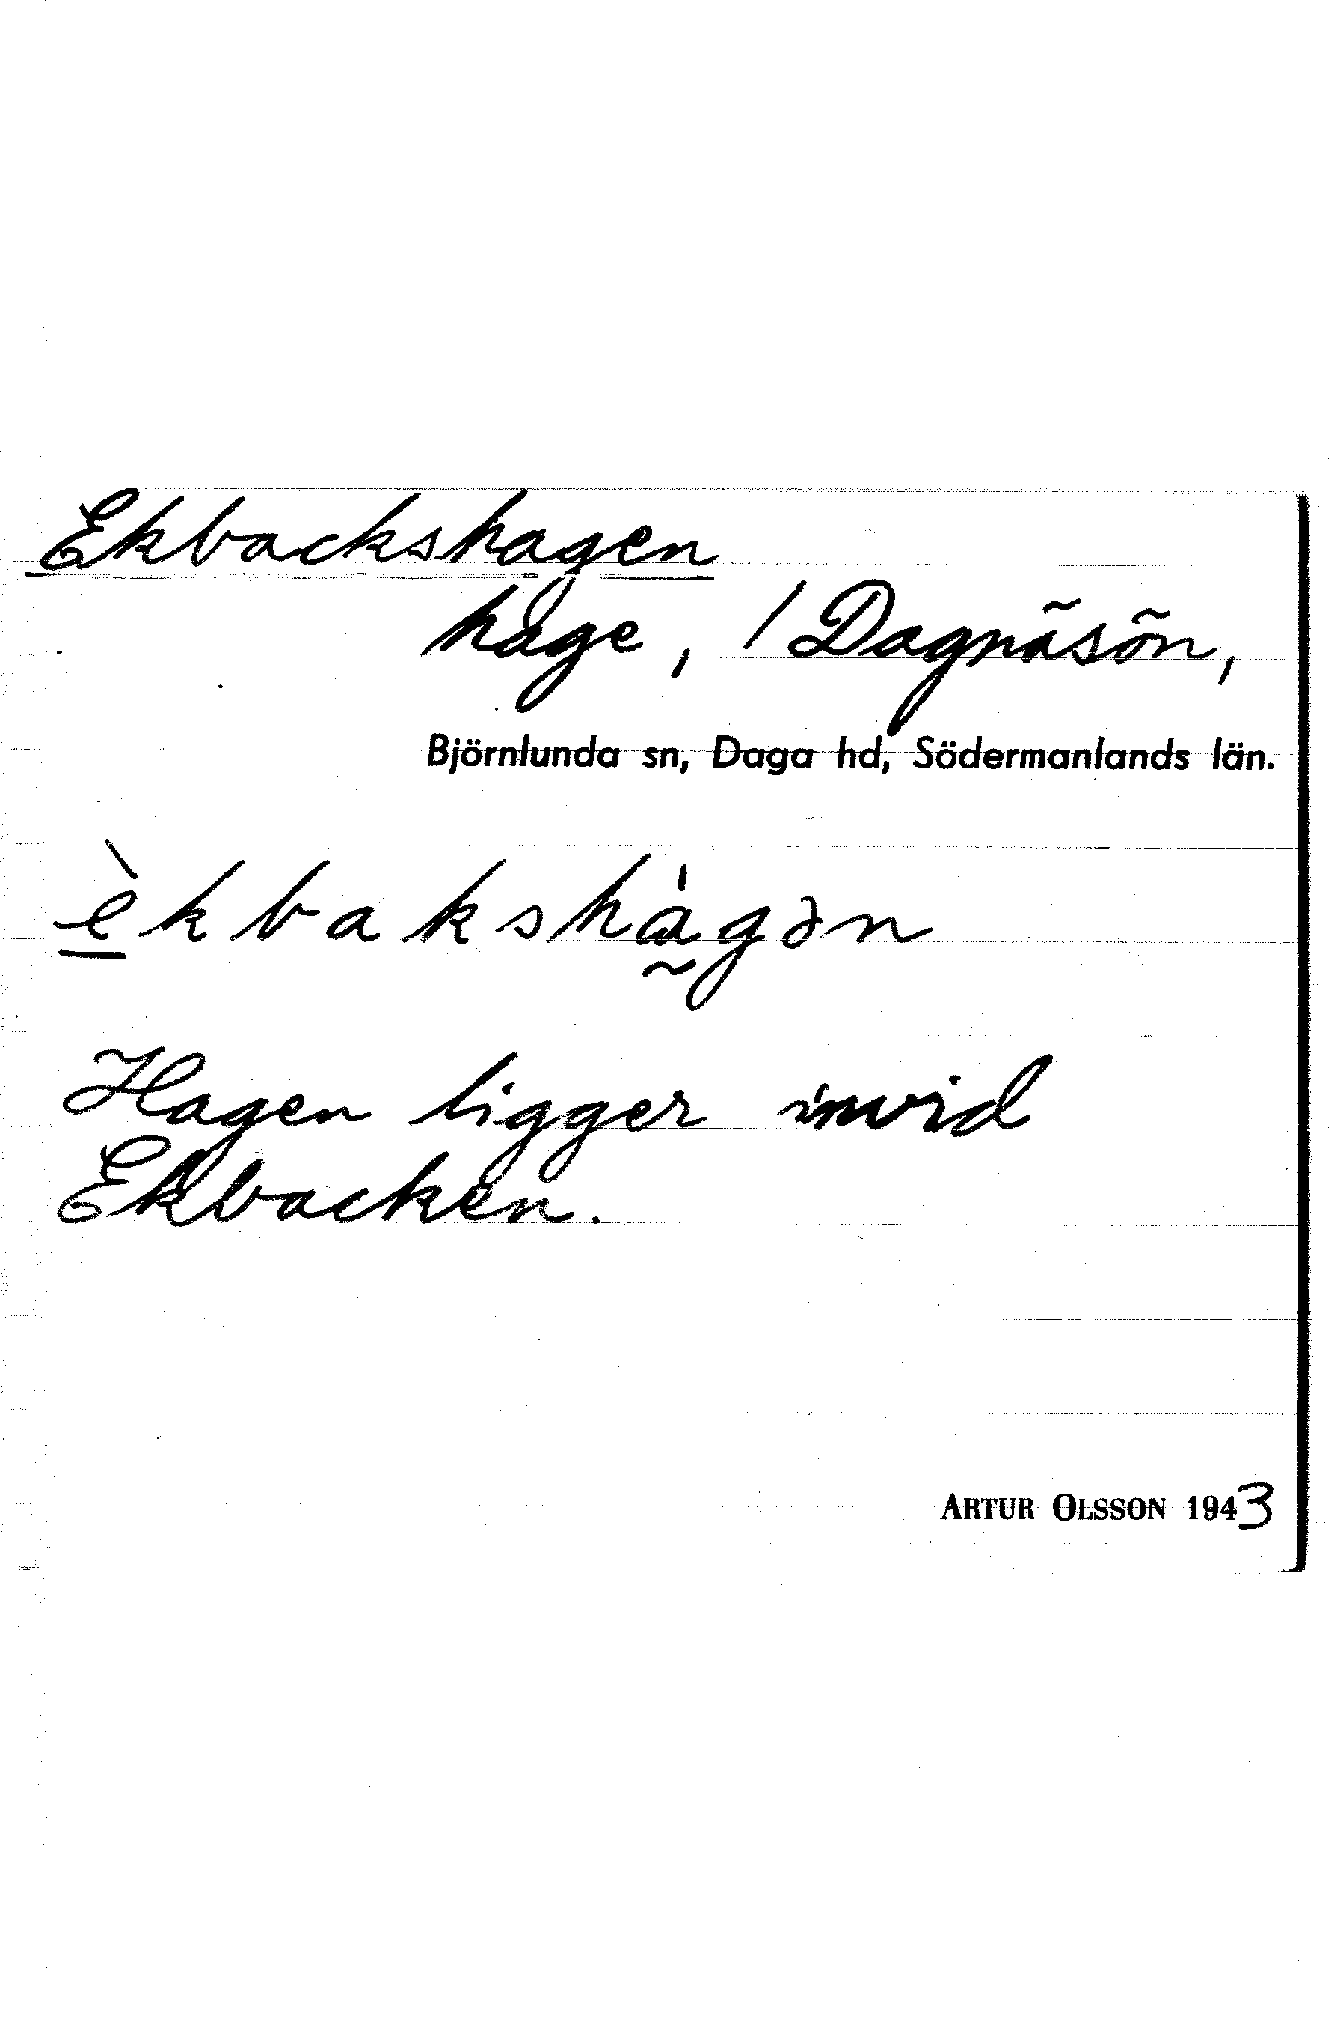 Ekbackshagen
hage, / Dagnäsön,
Björnlunda sn, Daga hd, Södermanlands län.
è̲kbakshàgən
Hagen ligger invid
Ekbacken.
ARTUR OLSSON 1943